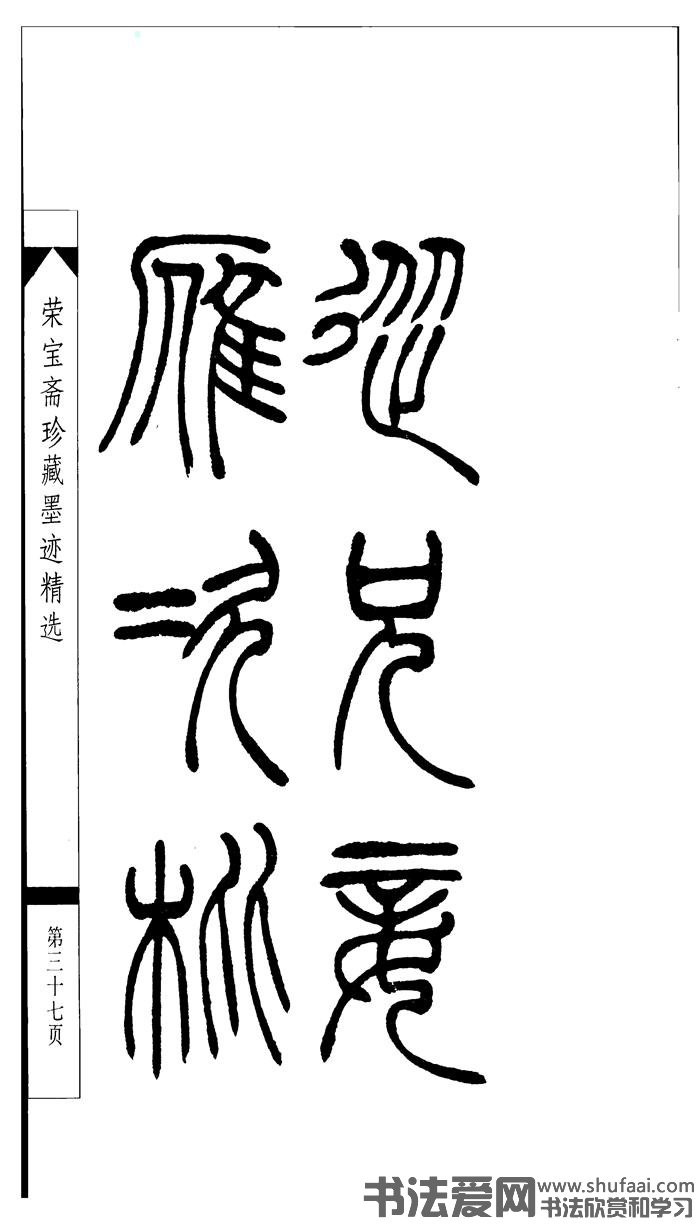 從兄
雁次
荣宝斋珍藏墨迹精选
第三十七页
书法爱网
www.shufaai.com
书法欣赏和学习